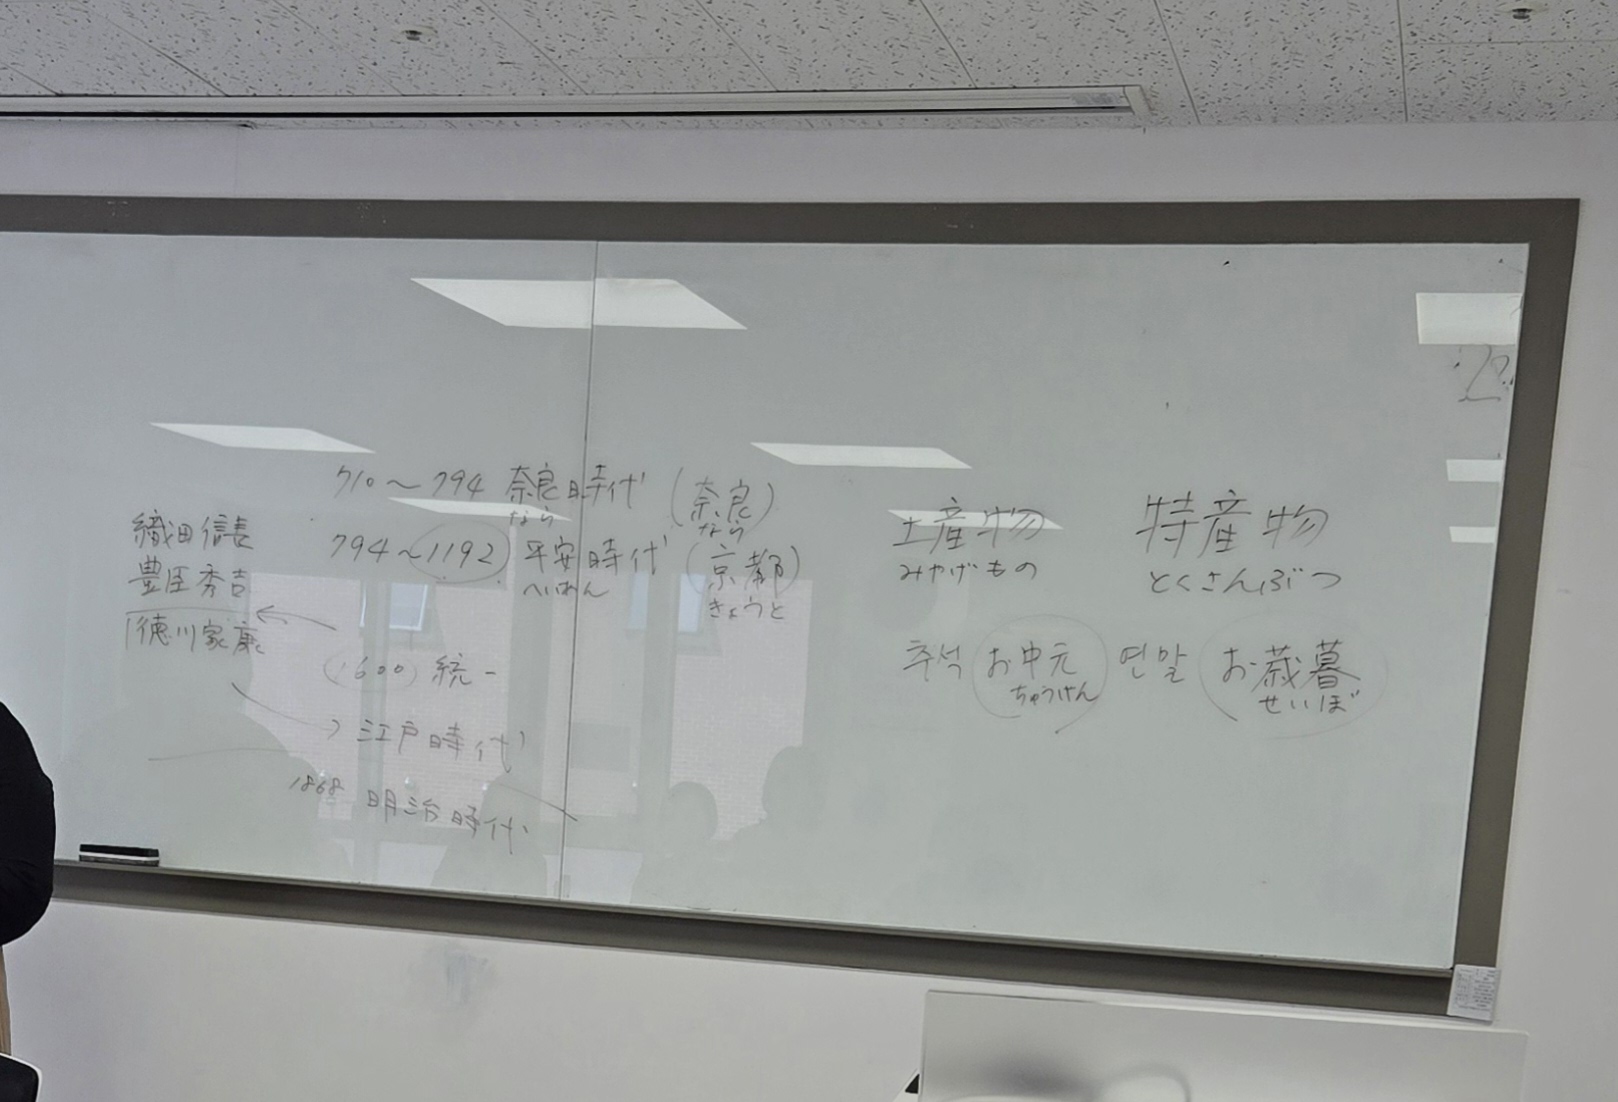 710～794 奈良時代 (奈良)
なら なら
794～1192 平安時代 (京都)
へいあん きょうと
織田信長
豊臣秀吉
徳川家康
1600 統一
江戸時代
1868 明治時代
土産物 特産物
みやげもの とくさんぶつ
추석 お中元 연말 お歳暮
ちゅうげん せいぼ